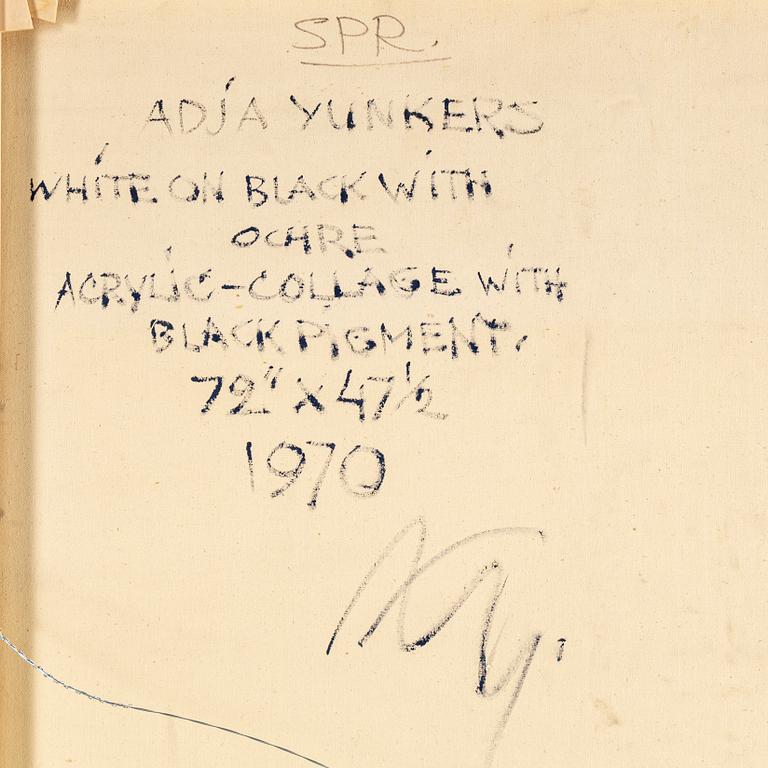 SPR.
ADJA YUNKERS
WHITE ON BLACK WITH
OCHRE
ACRYLIC-COLLAGE WITH
BLACK PIGMENT.
72" x 47½
1970